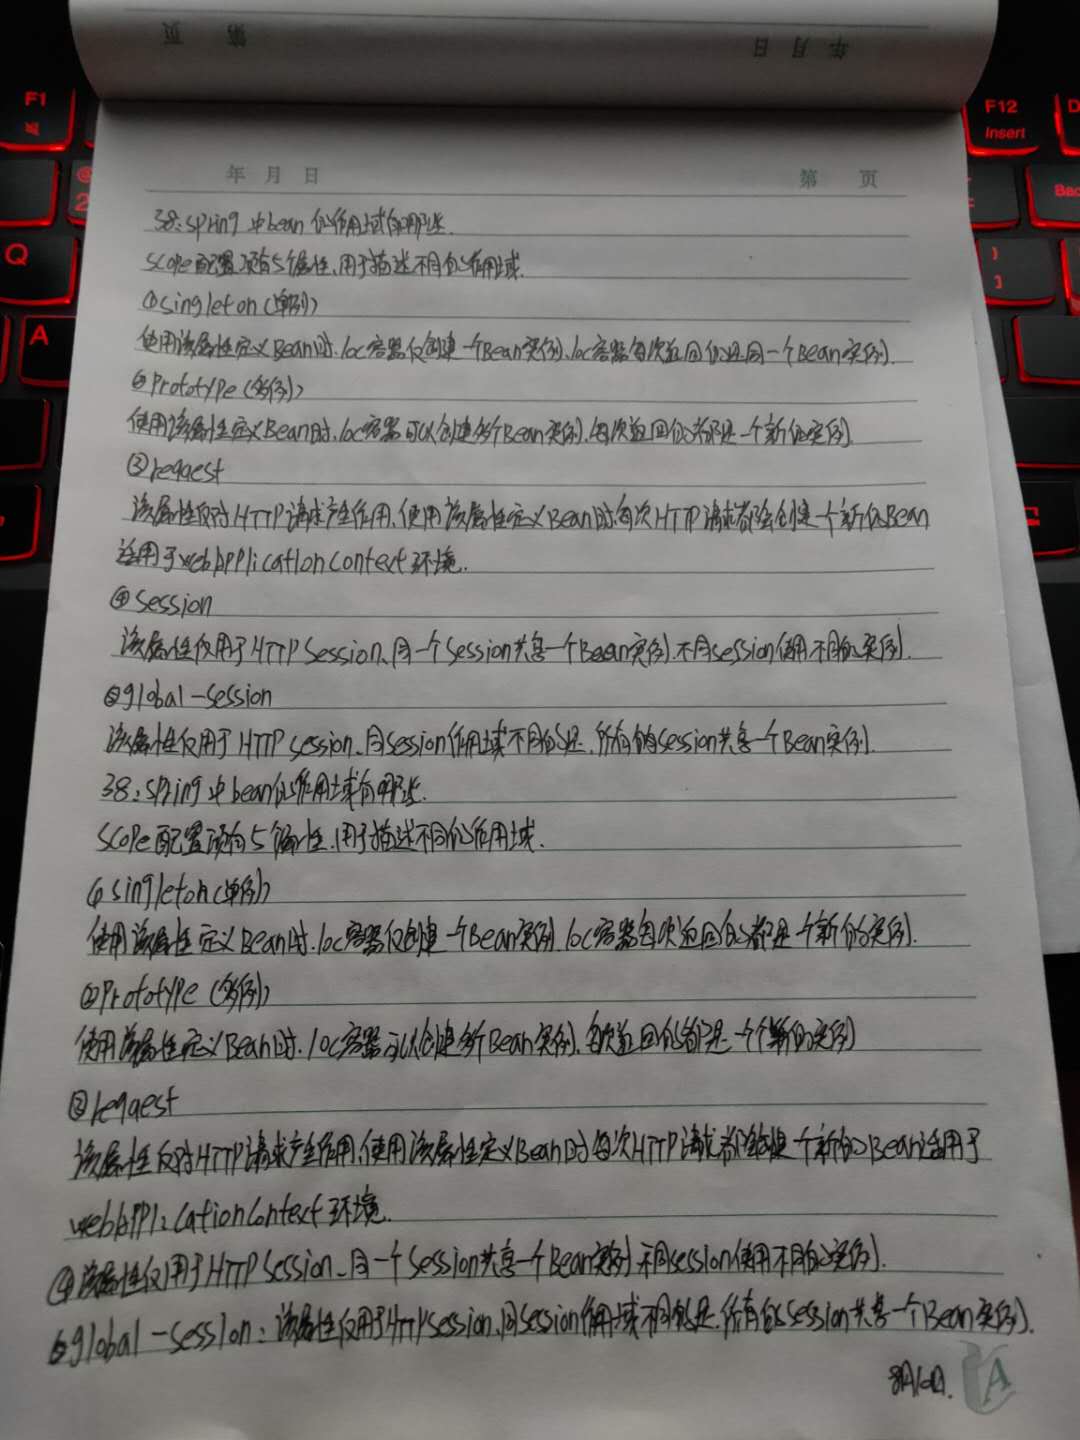 第 页
年 月 日
F1
F12
Insert
Q
A
2
年 月 日 第 页
38:spring中bean的作用域有哪些.
scope配置项有5个属性,用于描述不同的作用域.
①singleton(单例)
使用该属性定义Bean时.Ioc容器仅创建一个Bean实例,Ioc容器每次返回的是同一个Bean实例.
②Prototype(多例)
使用该属性定义Bean时,Ioc容器可以创建多个Bean实例.每次返回的都是一个新的实例
③reqaest
该属性仅对HTTP请求产生作用,使用该属性定义Bean时每次HTTP请求都会创建一个新的Bean
适用于WebApplicationContext环境.
④Session
该属性仅用于HTTP Session、同一个Session共享一个Bean实例.不同session使用不同的实例.
⑤global-session
该属性仅用于HTTP session、同session作用域不同的是,所有的session共享一个Bean实例.
38:spring中bean的作用域有哪些.
scope配置项有5个属性,用于描述不同的作用域.
①singleton(单例)
使用该属性定义Bean时.Ioc容器仅创建一个Bean实例 Ioc容器每次返回的都是一个新的实例.
②Prototype(多例)
使用该属性定义Bean时.Ioc容器可以创建多个Bean实例.每次返回的都是一个个新的实例
③reqaest
该属性仅对HTTP请求产生作用,使用该属性定义Bean时每次HTTP请求都会创建一个新的Bean适用于
WebApplicationContext环境.
④该属性仅用于HTTP Session、同一个Session共享一个Bean实例 不同session使用不同的实例.
⑤global-session:该属性仅用于Http session、同session作用域不同的是.所有的session共享一个Bean实例.
8月10日.